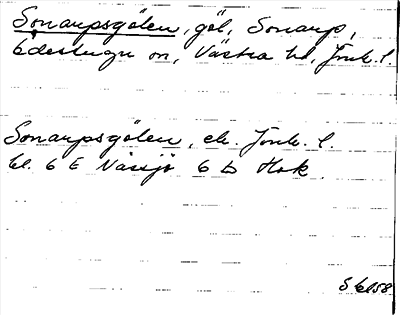 Sonarpsgölen, göl, Sonarp,
Ödestugu sn, Västra hd, Jönk. l.
Sonarpsgölen, ek. Jönk. l.
bl. 6 E Nässjö 6 D Hok